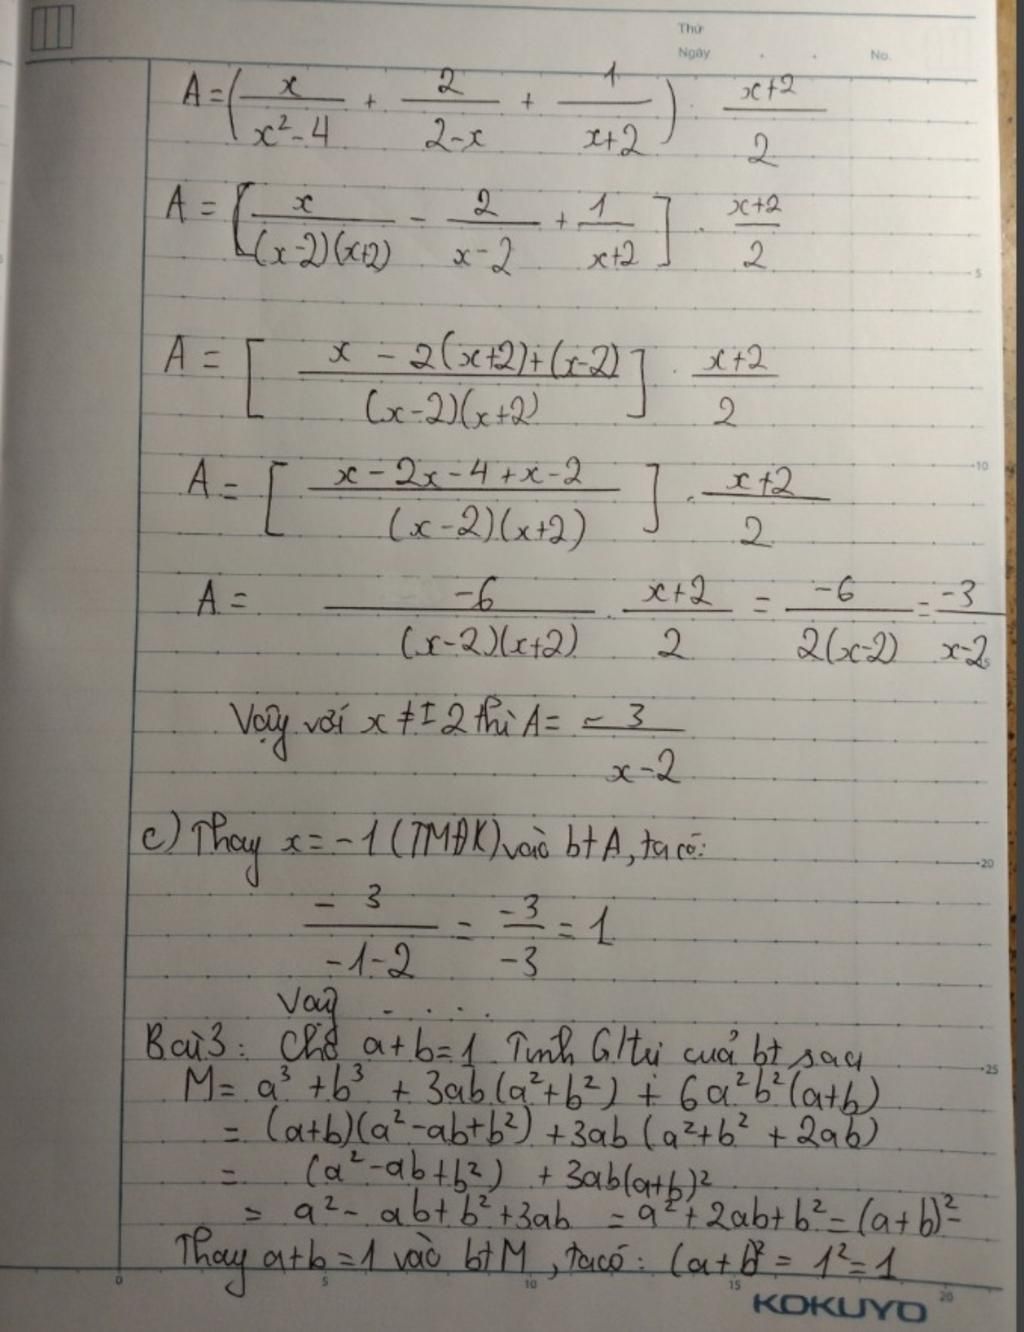 Thứ
Ngày . . No.
A = ( x/(x² - 4) + 2/(2-x) + 1/(x+2) ) . (x+2)/2
A = [ x/((x-2)(x+2)) - 2/(x-2) + 1/(x+2) ] . (x+2)/2
5
A = [ (x - 2(x+2)+(x-2))/((x-2)(x+2)) ] . (x+2)/2
10
A = [ (x - 2x - 4 + x - 2)/((x-2)(x+2)) ] . (x+2)/2
A = -6/((x-2)(x+2)) . (x+2)/2 = -6/(2(x-2)) = -3/(x-2)
Vậy với x ≠ ± 2 thì A = -3/(x-2)
c) Thay x = -1 (TMĐK) vào bt A, ta có:
20
-3/(-1-2) = -3/-3 = 1
Vậy . . . .
Bài 3: Cho a+b=1 Tính G/trị của bt sau
25
M = a³ + b³ + 3ab(a²+b²) + 6a²b²(a+b)
= (a+b)(a²-ab+b²) + 3ab(a²+b² + 2ab)
= (a²-ab+b²) + 3ab(a+b)²
= a² - ab + b² + 3ab = a² + 2ab + b² = (a+b)²
Thay a+b=1 vào bt M, ta có: (a+b)² = 1² = 1
0 5 10 15 20
KOKUYO